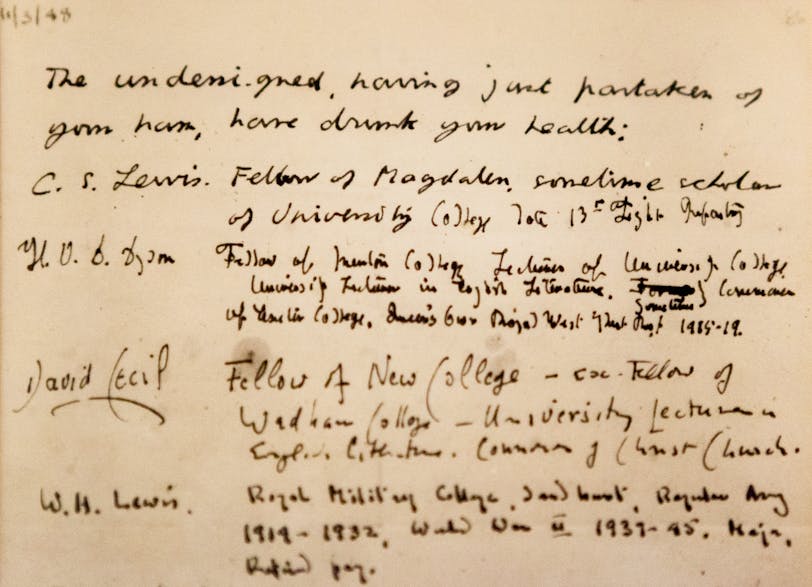 11/3/48
The undersigned, having just partaken of
your ham, have drunk your health:
C. S. Lewis. Fellow of Magdalen, sometime scholar
of University College late 13th Light Infantry
H. V. D. Dyson Fellow of Merton College Lecturer of University College
University Lecturer in English Literature. Sometime Commoner
of Exeter College, Queen's Own Royal West Kent Regt 1915-19.
David Cecil Fellow of New College - ex-Fellow of
Wadham College - University Lecturer in
English Literature. Commoner of Christ Church.
W.H. Lewis. Royal Military College, Sandhurst, Regular Army
1914-1932, World War II 1939-45. Major,
Retired pay.